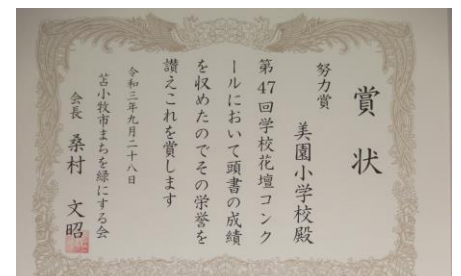 賞状
努力賞
美園小学校殿
第47回学校花壇コンク
ールにおいて頭書の成績
を収めたのでその栄誉を
讃えこれを賞します
令和三年九月二十八日
苫小牧市まちを緑にする会
会長 桑村 文昭